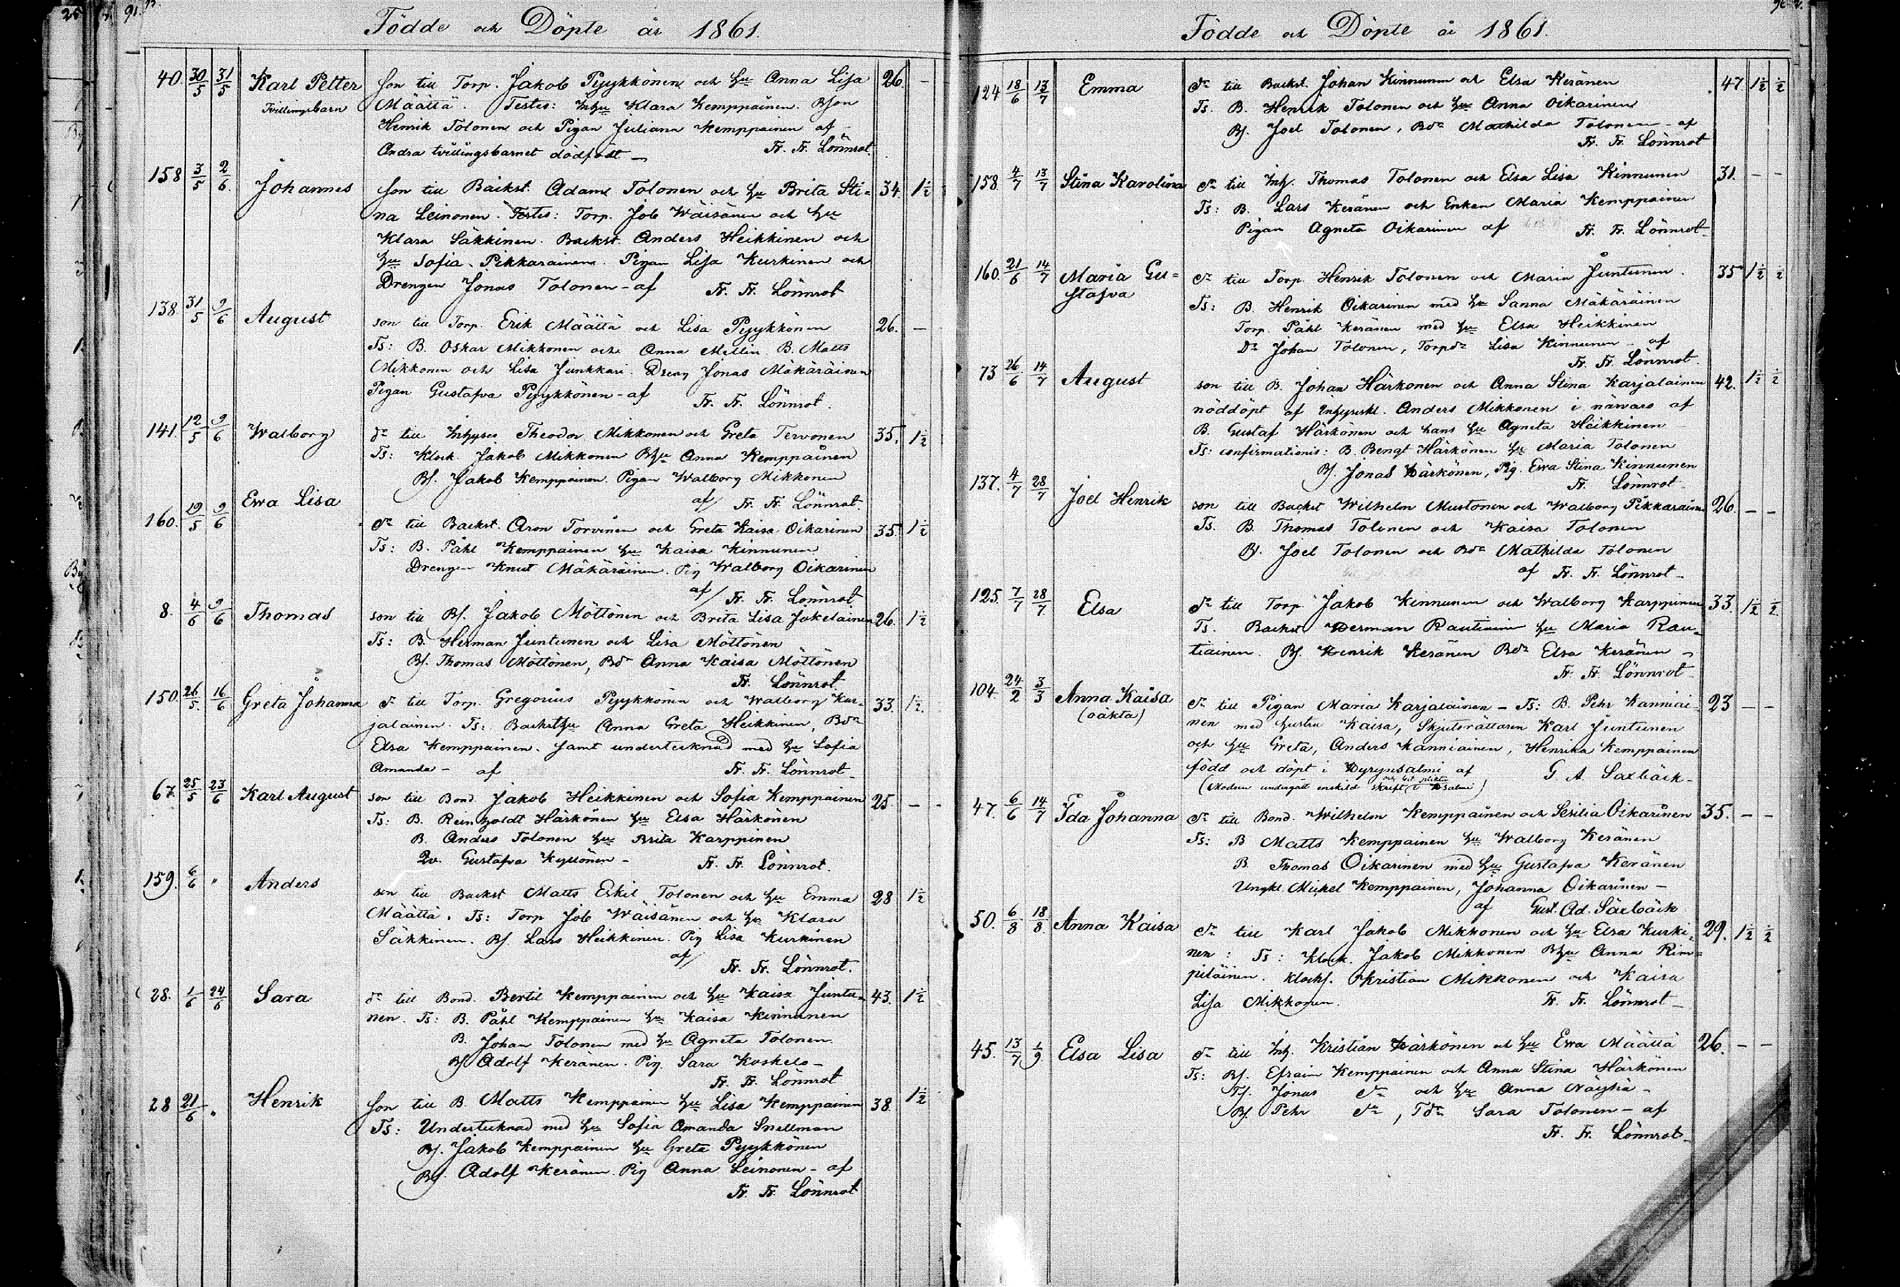 Födde och Döpte år 1861.
40. 30/5 31/5 Karl Petter Son till Torp. Jakob Pyykkönen och Hu Anna Lisa 26. –
Tvillingsbarn Määttä. Testes: Klara Kemppainen. Bson
Henrik Tolonen och Pigan Juliana Kemppainen af –
Andra tvillingsbarnet dödfödt – Fr. Fr. Lönnrot.
158 3/5 2/6 Johannes Son till Backst. Adam Tolonen och Hu Brita Sti- 34. 1½
na Leinonen. Testes: Torp. Job Wäisänen och Hu
Klara Säkkinen. Backst. Anders Heikkinen och
Hu Sofia Pikkarainen. Pigan Lisa Kurkinen och
Drengen Jonas Tolonen – af Fr. Fr. Lönnrot
138. 31/5 9/6 August son till Torp. Erik Määttä och Lisa Pyykkönen 26. –
Ts: B. Oskar Mikkonen och Anna Mellin. B. Matts
Mikkonen och Lisa Junkkari. Dreng Jonas Mäkäräinen
Pigan Gustafva Pyykkönen – af Fr. Fr. Lönnrot.
141. 12/5 9/6 Walborg dr till Theodor Mikkonen och Greta Tervonen 35. 1½
Ts: Klock. Jakob Mikkonen Anna Kemppainen
Bs. Jakob Kemppainen. Pigan Walborg Mikkonen
af Fr. Fr. Lönnrot.
160. 19/5 9/6 Ewa Lisa dr till Backst. Aron Torvinen och Greta Kaisa Oikarinen 35. 1½
Ts: B. Påhl Kemppainen Hu Kaisa Kinnunen
Drengen Knut Mäkäräinen. Pig Walborg Oikarinen
af Fr. Fr. Lönnrot
8. 4/6 9/6 Thomas son till Bs. Jakob Möttönen och Brita Lisa Jokelainen 26. 1½
Ts: B. Herman Juntunen och Lisa Möttönen
Bs. Thomas Möttönen, Bdr Anna Kaisa Möttönen
Fr. Fr. Lönnrot
150. 26/5 16/6 Greta Johanna dr till Torp. Gregorius Pyykkönen och Walborg Kar- 33. 1½
jalainen. Ts: Anna Greta Heikkinen, Bdr
Elsa Kemppainen. Samt undertecknad med Hu Sofia
Amanda – af Fr. Fr. Lönnrot –
67. 25/5 23/6 Karl August son till Bond. Jakob Heikkinen och Sofia Kemppainen 25 – –
Ts: B. Reinholdt Härkönen Hu Elsa Härkönen
B. Anders Tolonen Hu Brita Karppinen
Gustafva Kyllönen – Fr. Fr. Lönnrot.
159. 6/6 " Anders son till Backst Matts Eskil Tolonen och Hu Emma 28 1½
Määttä. Ts: Torp Job Wäisänen och Hu Klara
Säkkinen. Bs Lars Heikkinen. Pig Lisa Kurkinen
af Fr. Fr. Lönnrot.
28. 1/6 24/6 Sara dr till Bond. Bertil Kemppainen och Hu Kaisa Juntu- 43. 1½
nen. Ts: B. Påhl Kemppainen Hu Kaisa Kinnunen
B. Johan Tolonen med Hu Agneta Tolonen.
Bs Adolf Keränen. Pig Sara Koskelo –
Fr. Fr. Lönnrot
28 21/6 " Henrik Son till B. Matts Kemppainen Hu Lisa Kemppainen 38. 1½
Ts: Undertecknad med Hu Sofia Amanda Snellman
Bs. Jakob Kemppainen Hu Greta Pyykkönen
Bs. Adolf Keränen. Pig Anna Leinonen – af
Fr. Fr. Lönnrot
Födde och Döpte år 1861.
124 18/6 13/7 Emma dr till Backst. Johan Kinnunen och Elsa Keränen 47. 1½ ½
Ts. B. Henrik Tolonen och Hu Anna Oikarinen
Bs. Joel Tolonen, Bdr Mathilda Tolonen – af
Fr. Fr. Lönnrot
158. 4/7 13/7 Stina Karolina dr till Inh. Thomas Tolonen och Elsa Lisa Kinnunen 31. – –
Ts: B. Lars Keränen och Enkan Maria Kemppainen
Pigan Agneta Oikarinen af Fr. Fr. Lönnrot
160. 21/6 14/7 Maria Gu- dr till Torp. Henrik Tolonen och Maria Juntunen. 35 1½ ½
stafva Ts: B. Henrik Oikarinen med Hu Sanna Mäkäräinen
Torp. Påhl Keränen med Hu Elsa Heikkinen
Dr Johan Tolonen, Torpdr Lisa Kinnunen – af
Fr. Fr. Lönnrot.
73 26/6 14/7 August son till B. Johan Härkönen och Anna Stina Karjalainen 42. 1½ ½
nöddöpt af Anders Mikkonen i närvaro af
B. Gustaf Härkönen och hans Hu Agneta Heikkinen –
Ts: confirmationis: B. Bengt Härkönen Hu Maria Tolonen
Bs. Jonas Härkönen, Pig. Ewa Stina Kinnunen
Fr. Lönnrot
137. 4/7 28/7 Joel Henrik son till Backst Wilhelm Mustonen och Walborg Pikkarainen 26. – –
Ts. B. Thomas Tolonen och Kaisa Tolonen
Bs. Joel Tolonen och Bdr Mathilda Tolonen
af Fr. Fr. Lönnrot –
125. 7/7 28/7 Elsa dr till Torp Jakob Kinnunen och Walborg Karppinen 33. 1½ ½
Ts. Backst Herman Rautiainen Hu Maria Rau-
tiainen. Bs. Henrik Keränen Bdr Elsa Keränen –
Fr. Fr. Lönnrot
104. 24/2 3/3 Anna Kaisa dr till Pigan Maria Karjalainen – Ts: B. Pehr Kanniai- 23 – –
(oäkta) nen med hustru Kaisa, Skjutsrättaren Karl Juntunen
och Hu Greta, Anders Kanniainen, Henrika Kemppainen
född och döpt i Hyrynsalmi af G. A. Saxbäck –
(Modern undergått enskild skrift
47. 6/6 14/7 Ida Johanna dr till Bond. Wilhelm Kemppainen och Sesilia Oikarinen 35. – –
Ts: B Matts Kemppainen Hu Walborg Keränen
B Thomas Oikarinen med Hu Gustafva Keränen
Ungkl. Mickel Kemppainen, Johanna Oikarinen –
af Gust. Ad. Saxbäck
50. 6/8 18/8 Anna Kaisa dr till Karl Jakob Mikkonen och Hu Elsa Kurki- 29. 1½ ½
nen: Ts: Klock. Jakob Mikkonen Anna Rim-
piläinen. Klocks. Kristian Mikkonen och Kaisa
Lisa Mikkonen. Fr. Fr. Lönnrot –
45. 13/7 1/9 Elsa Lisa dr till Inh. Kristian Härkönen och Hu Ewa Määttä 26. – –
Ts: Bs. Efraim Kemppainen och Anna Stina Härkönen
Jonas do och Hu Anna
Bs. Pehr do, Tdr Sara Tolonen – af
Fr. Fr. Lönnrot –